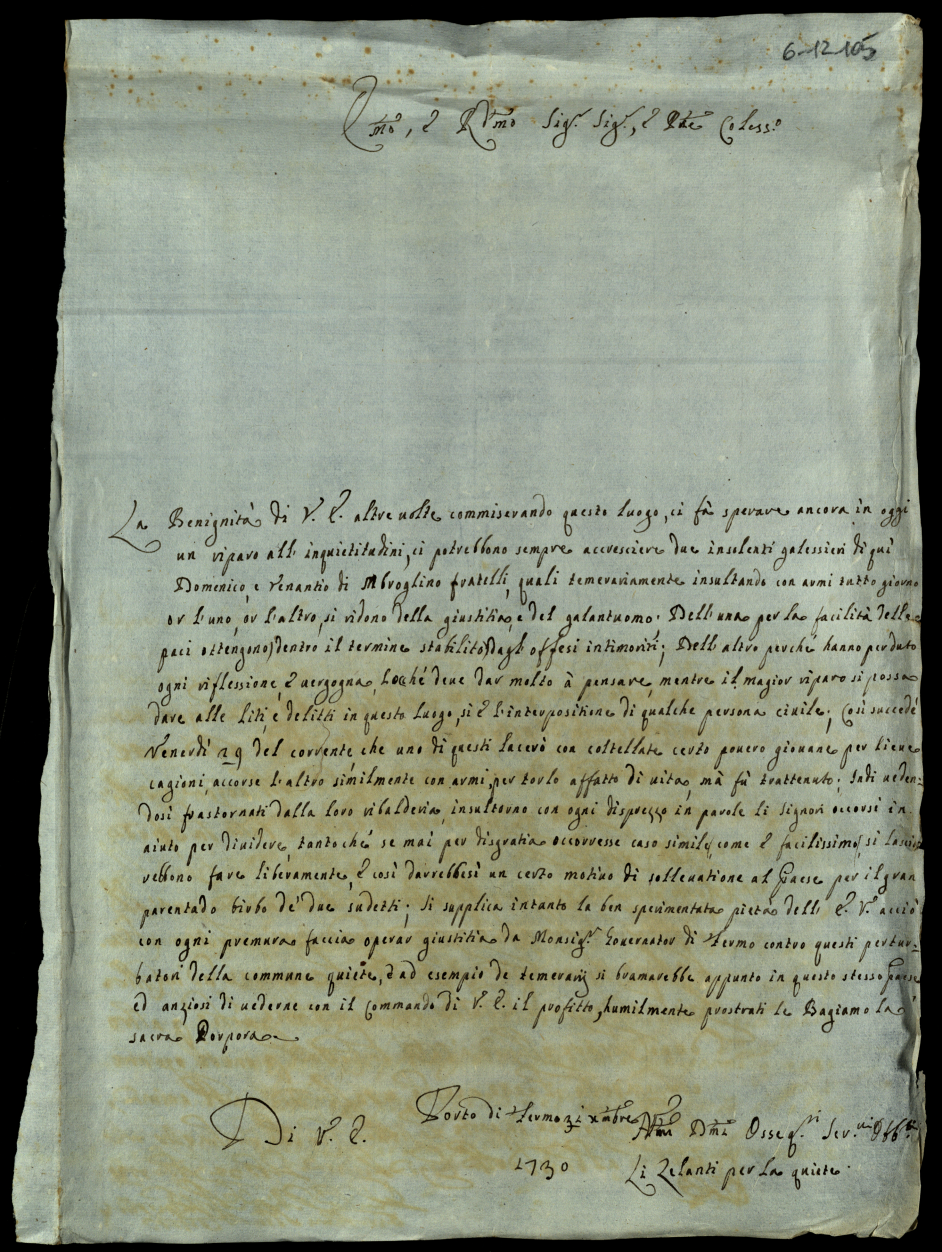 6-12-105
Emo, e Rdmo Sigr. Sigr., e Pne Coless.o
La Benignità di V. E. altre uolte commiserando questo luogo, ci fà sperare ancora in oggi
un riparo all' inquietitudini, ci potrebbono sempre accresciere due insolenti galessieri di quì
Domenico, e Venantio di Mbroglino fratelli, quali temerariamente insultando con armi tutto giorno
or l'uno, or l'altro, si ridono della giustitia, e del galantuomo. Dell' una per la facilità delle
paci ottengono) dentro il termine stabilito) dagl' offesi intimoriti; Dell' altro perché hanno perduto
ogni riflessione, e uergogna, Loché deue dar molto à pensare, mentre il magior riparo si possa
dare alle liti, e delitti in questo luogo, si è l'interpositione di qualche persona ciuile; Così succedé
Venerdì 29 del corrente che uno di questi lacerò con coltellate certo pouero giouane per lieue
cagioni, accorse l'altro similmente con armi, per torlo affatto di uita, mà fù trattenuto; Indi ueden-
dosi frastornati dalla loro ribalderia, insultorno con ogni disprezzo in parole li Signori occorsi in
aiuto per diuidere, tantoché se mai per disgratia occorresse caso simile, come è facilissimo, si lascia
rebbono fare liberamente, e così darebbesi un certo motiuo di solleuatione al Paese per il gran
parentado birbo de' due sudetti; Si supplica intanto la ben sperimentata pietà dell' E. V. acciò
con ogni premura faccia operar giustitia da Monsigr. Gouernator di Fermo contro questi pertur-
batori della commune quiete, ed ad esempio de temerarij si bramarebbe appunto in questo stesso Paese
ed anziosi di uederne con il Commando di V. E. il profitto, humilmente prostrati le Bagiamo la
sacra Porpora
Di V. E. Porto di Fermo 31 xmbre
1730
Osseq.mi Ser.ri Obb.mi
Li Zelanti per la quiete.